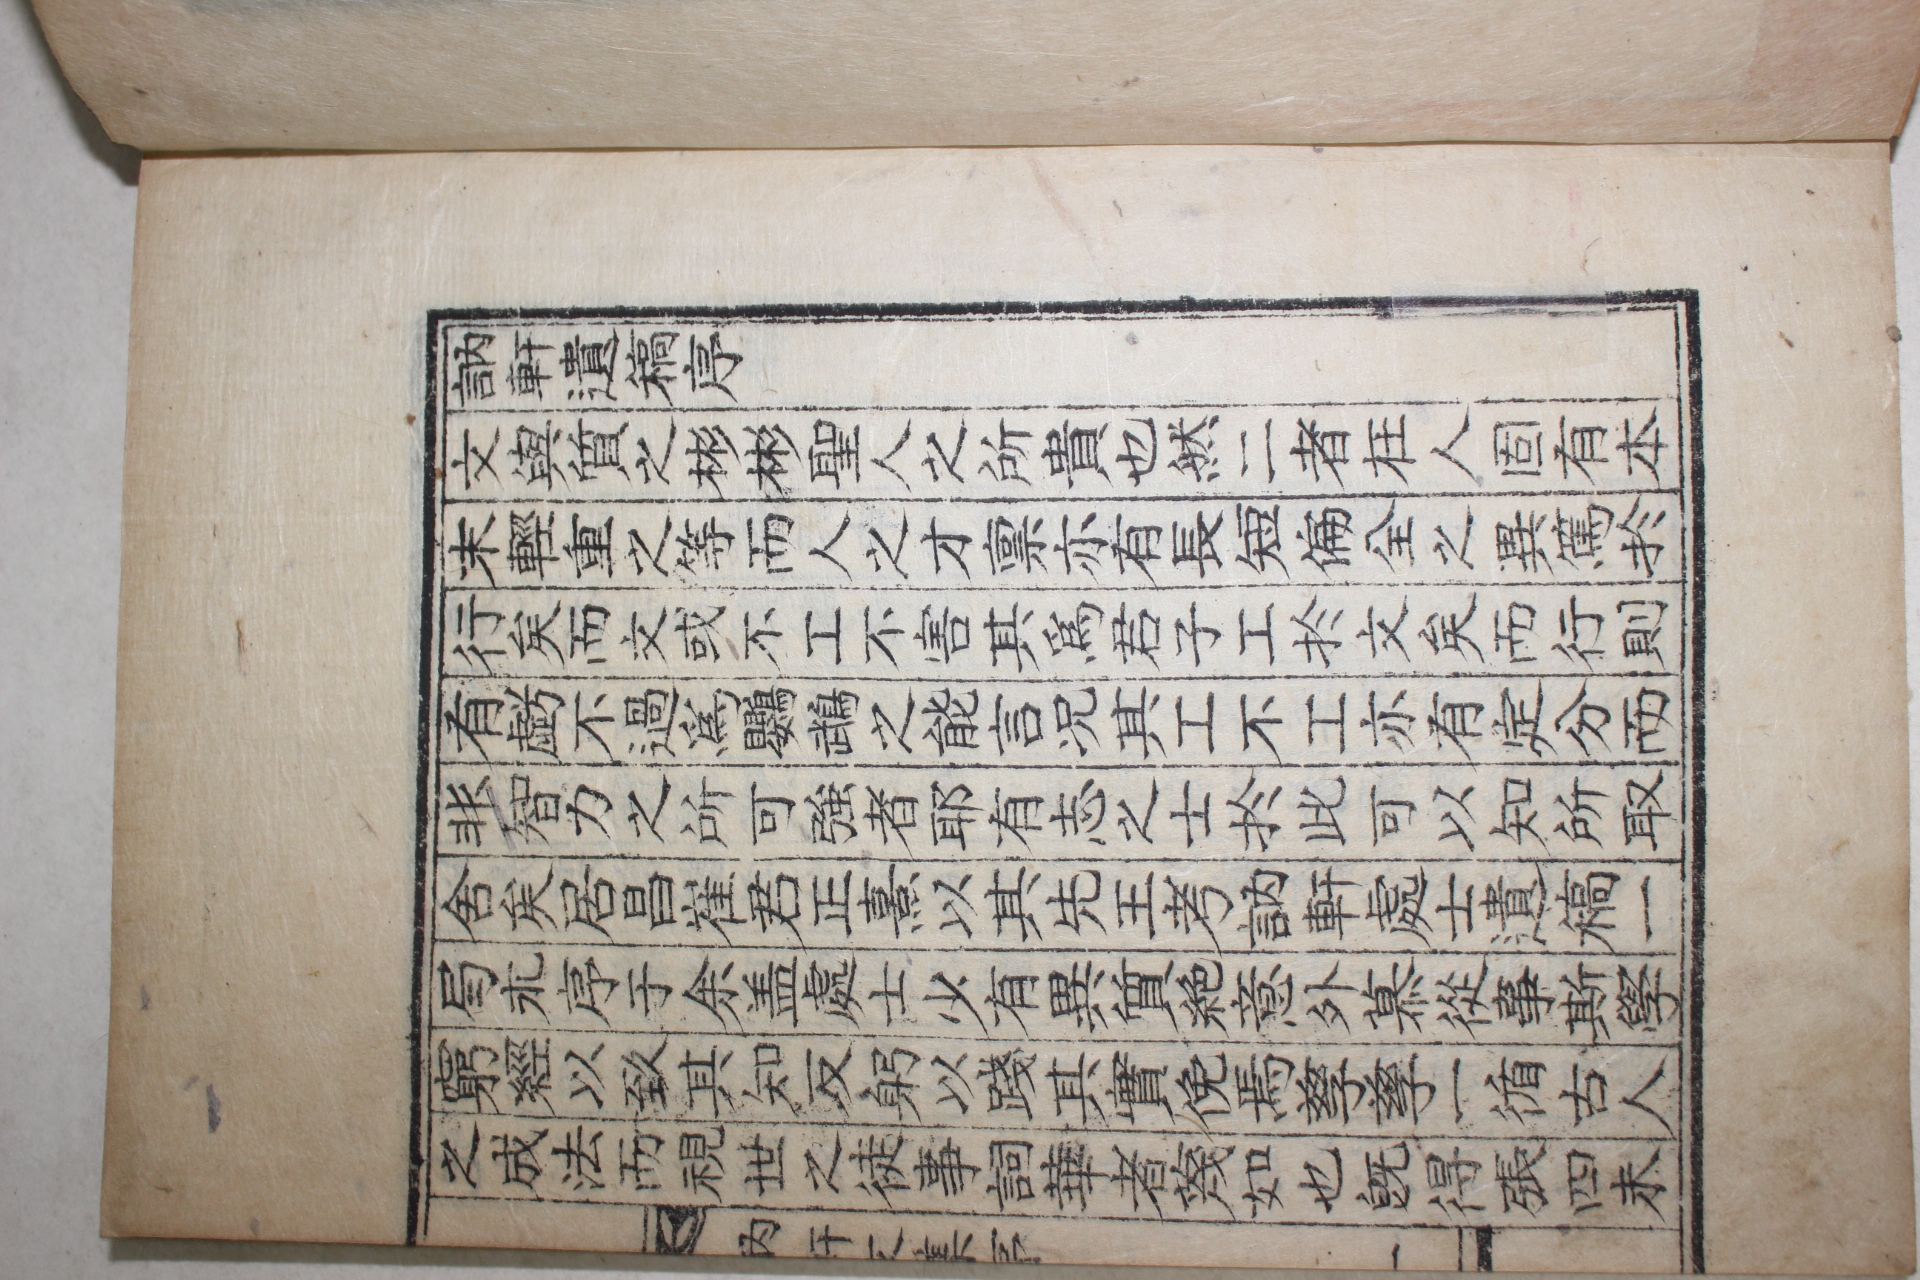 訥軒遺稿序
文與質之彬彬聖人之所貴也然二者在人固有本
末輕重之等而人之才稟亦有長短偏全之異篤於
行矣而文或不工不害其爲君子工於文矣而行則
有虧不過爲鸚鵡之能言况其工不工亦有定分而
非智力之所可強者耶有志之士於此可以知所取
舍矣居昌崔君正熹以其先王考訥軒處士遺稿一
局求序于余盖處士少有異質絶意外慕從事斯學
窮經以致其知反躬以踐其實俛焉孶孶一循古人
之成法而視世之徒事詞華者蔑如也旣得張四未
訥軒文集序 一